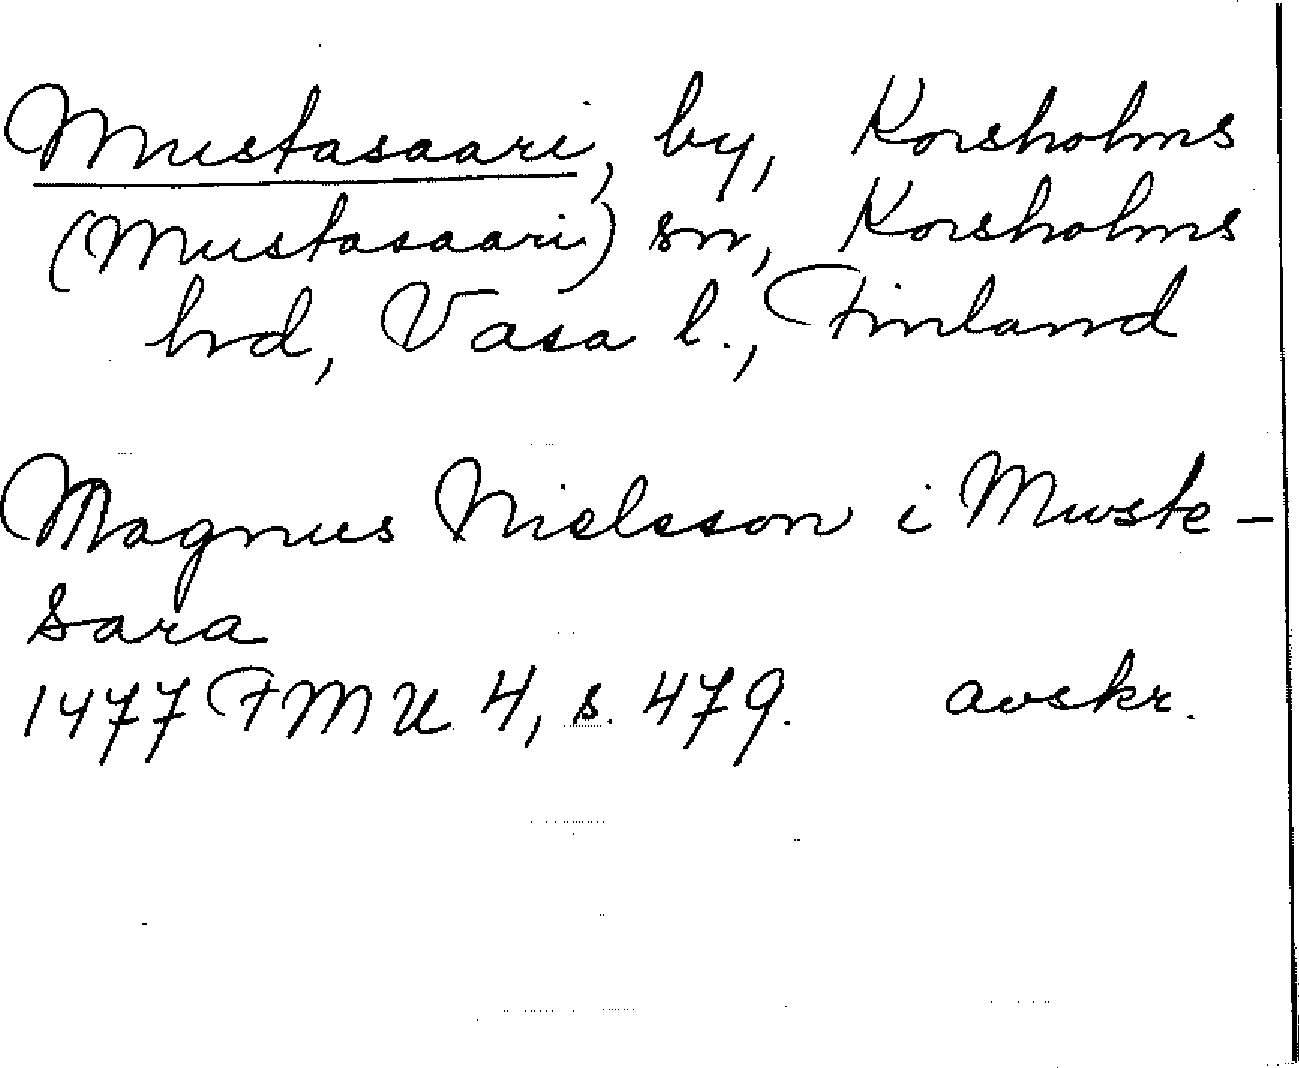 Mustasaari, by, Korsholms
(Mustasaari) sn, Korsholms
hd, Vasa l., Finland
Magnus Nielsson i Mwste-
sara
1477 FMU 4, s. 479. avskr.